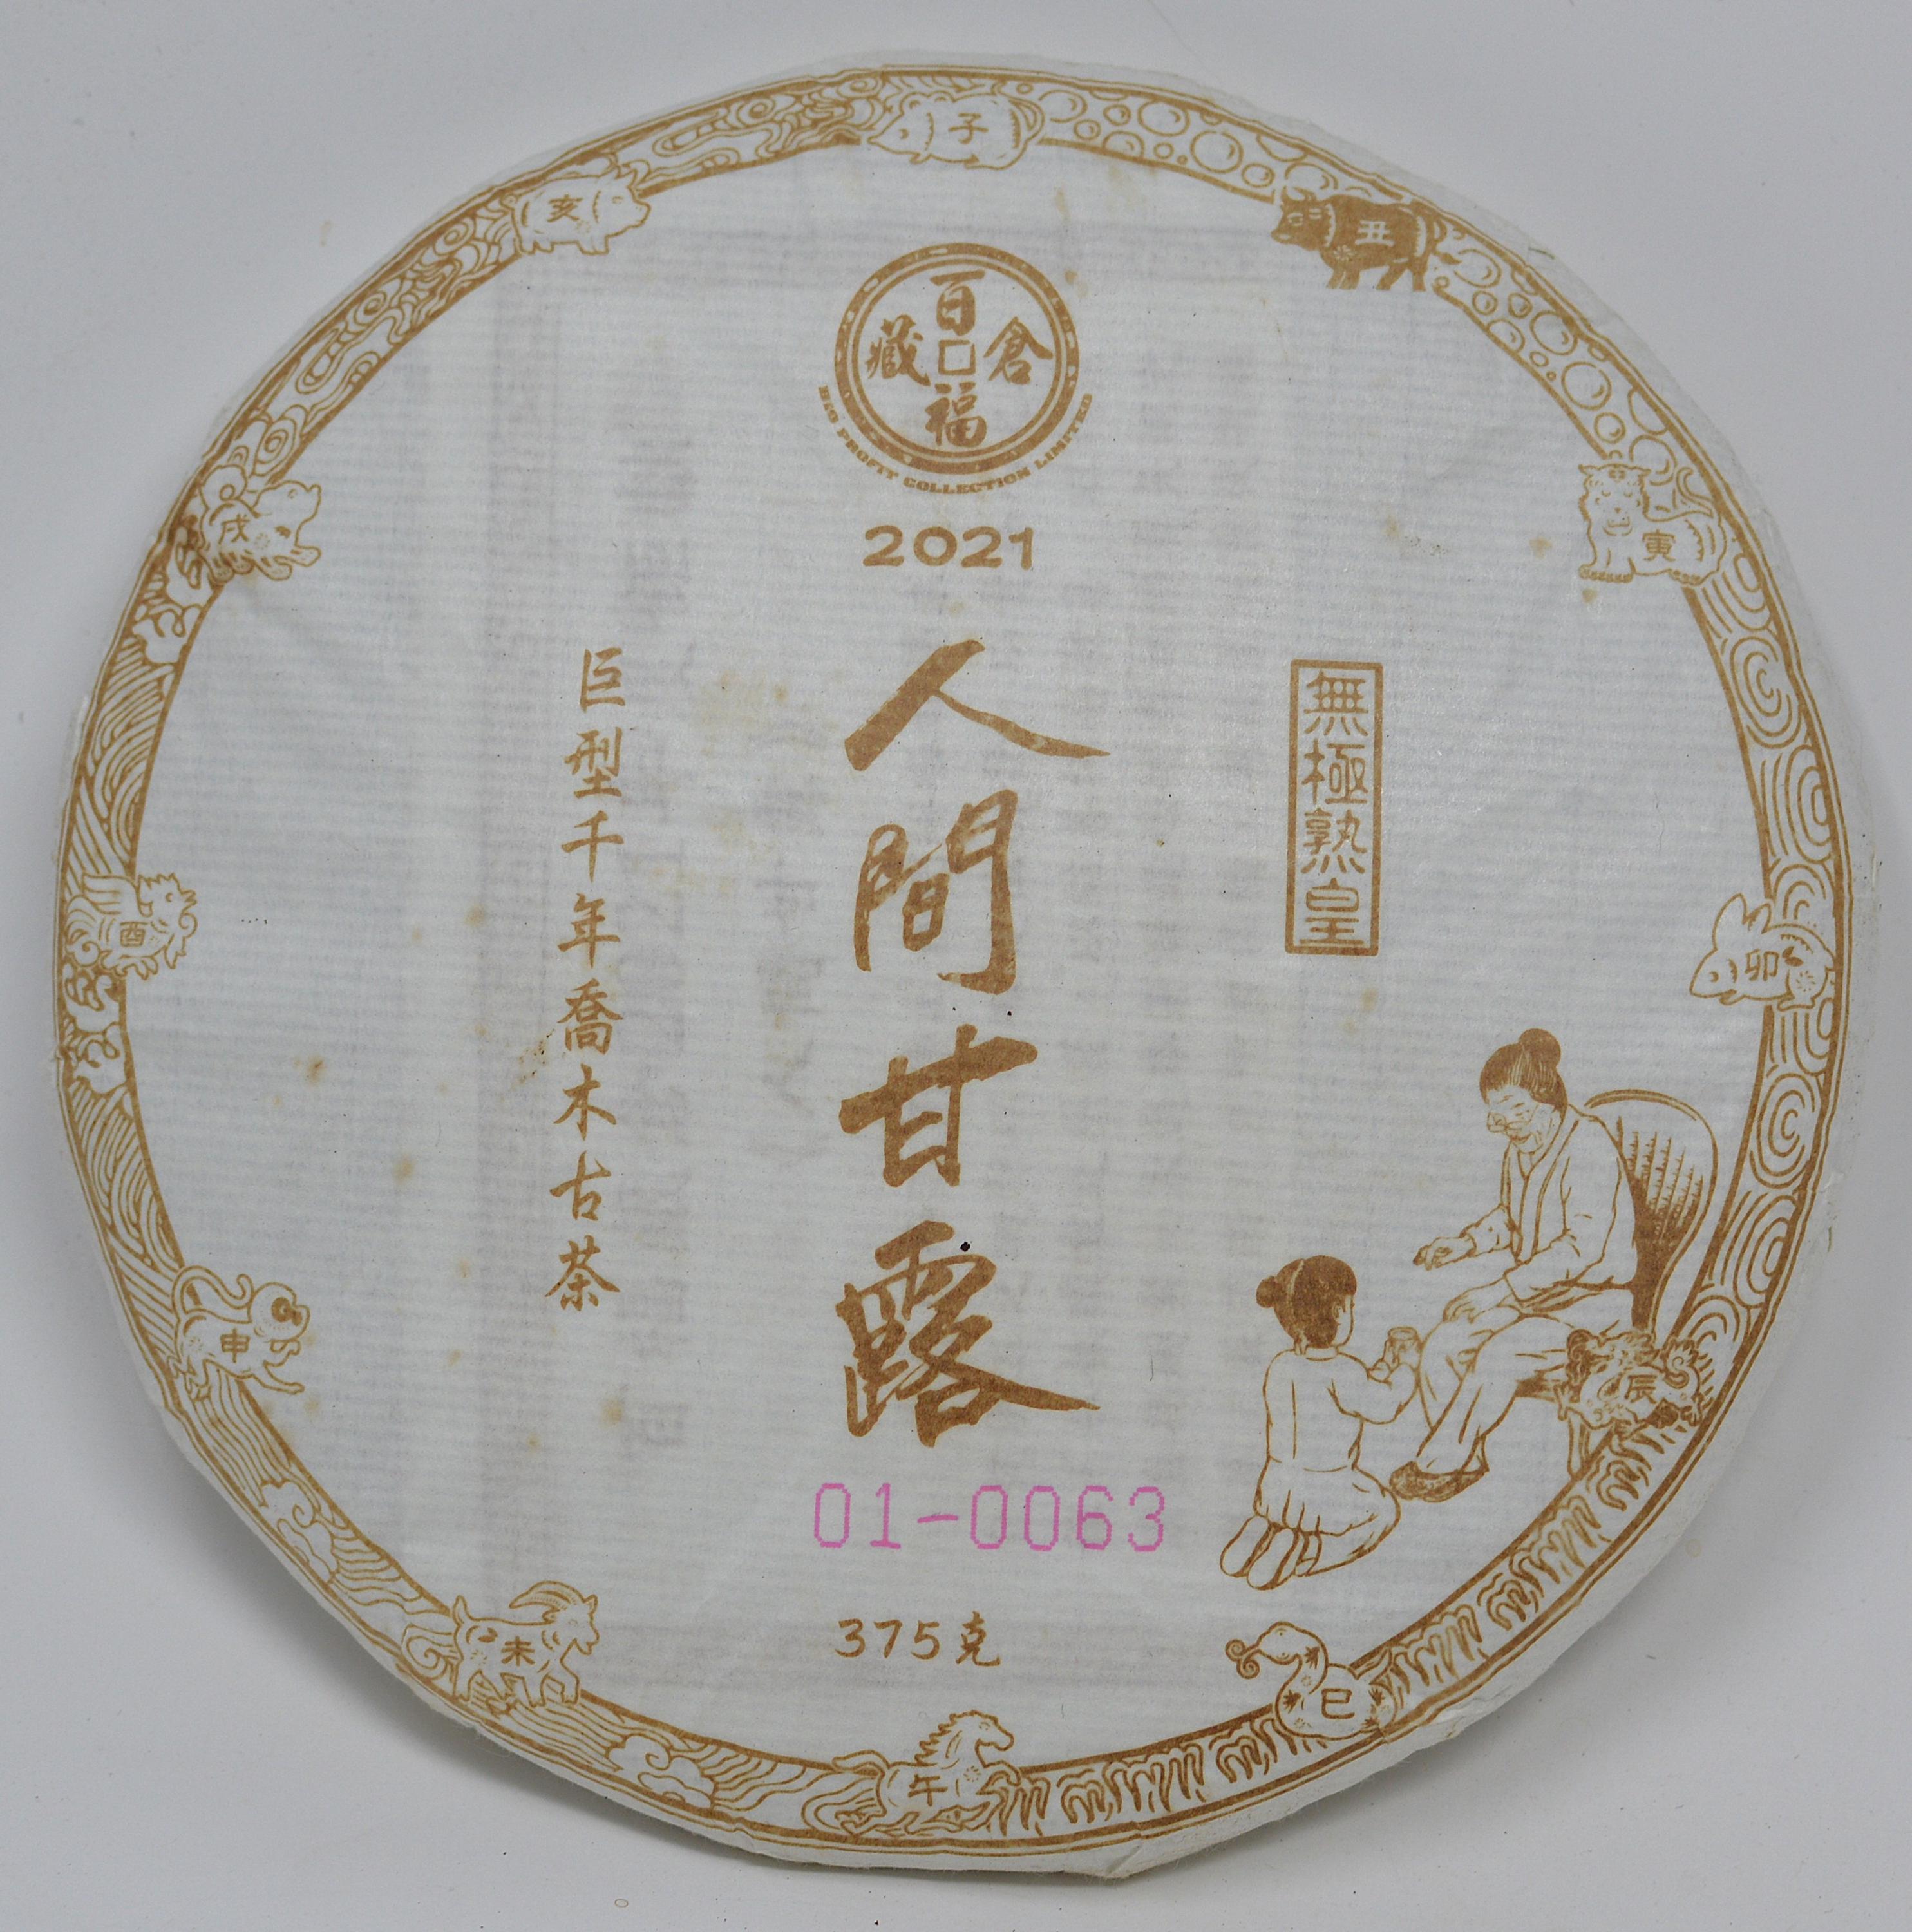 百福倉藏
BIG PROFIT COLLECTION LIMITED
2021
無極熟皇
人間甘露
巨型千年喬木古茶
01-0063
375克
子
丑
寅
卯
辰
巳
午
未
申
酉
戌
亥